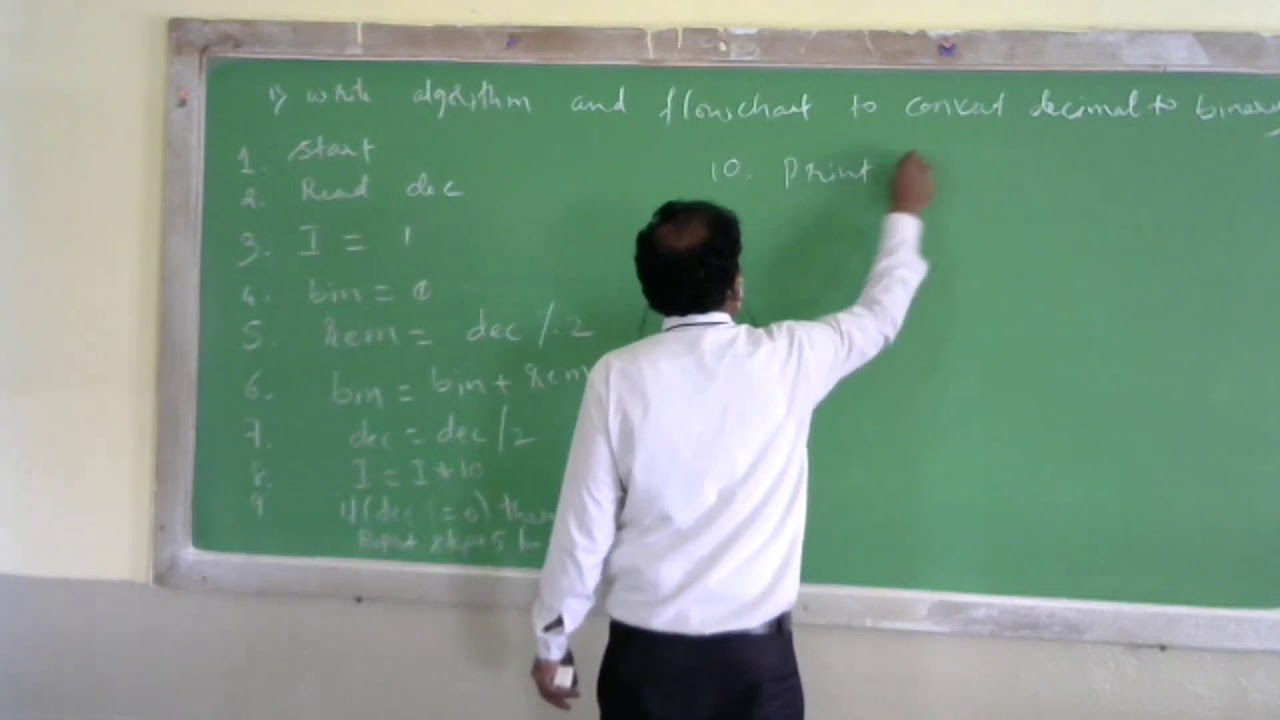 1) write algorithm and flowchart to convert decimal to binary
1. Start
2. Read dec
3. I = 1
4. bin = 0
5. rem = dec % 2
6. bin = bin + rem
7. dec = dec / 2
8. I = I * 10
9. if (dec != 0) then
Repeat step 5
10. Print